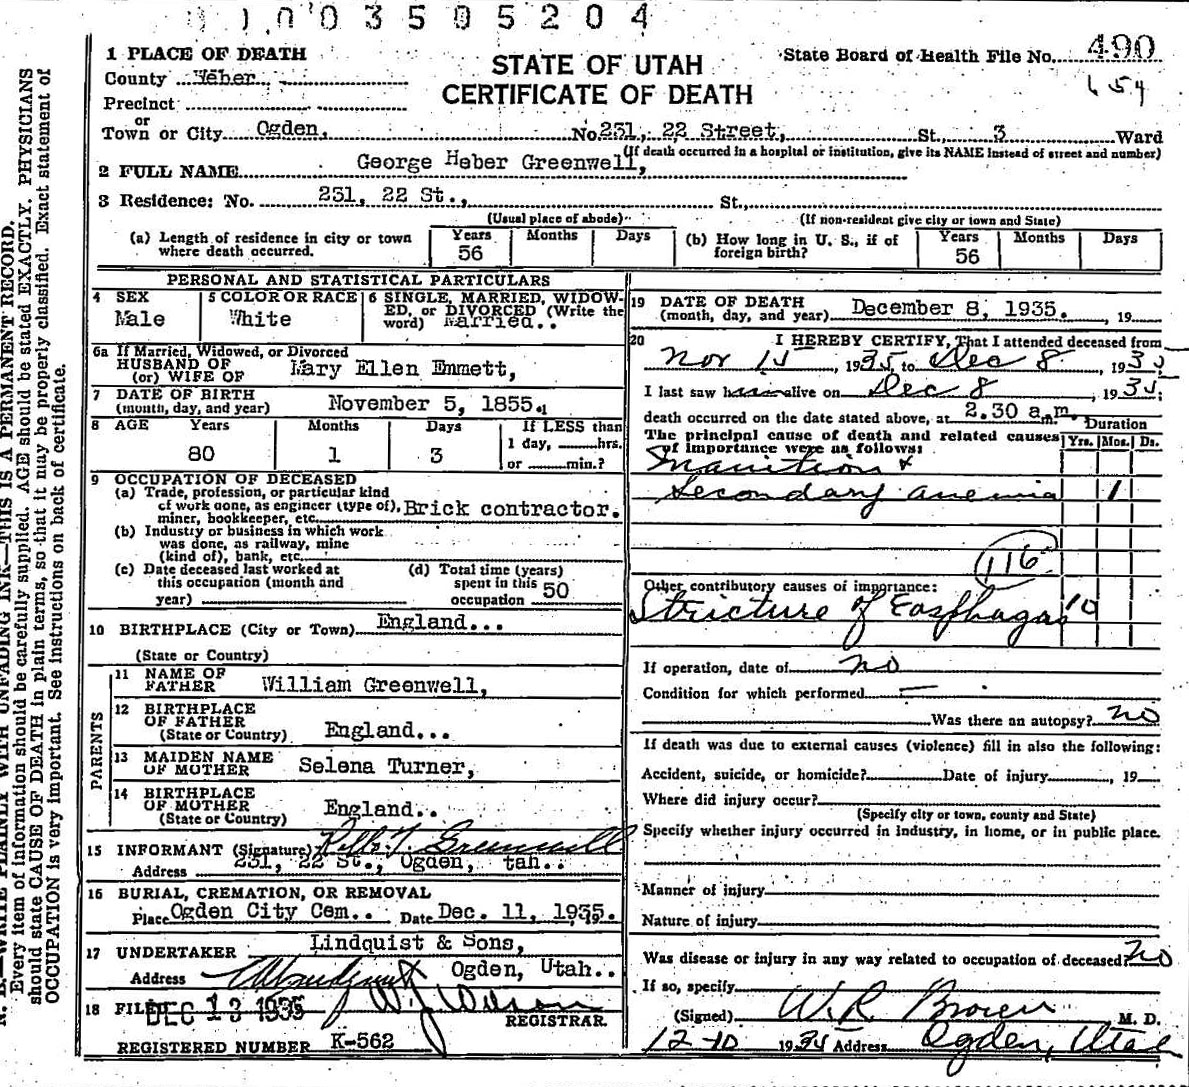 0 0 3 5 0 5 2 0 4
1 PLACE OF DEATH
County Weber
Precinct
or
Town or City Ogden, No. 251, 22 Street, St., 3 Ward
STATE OF UTAH
CERTIFICATE OF DEATH
State Board of Health File No. 490
654
(If death occurred in a hospital or institution, give its NAME instead of street and number)
2 FULL NAME George Heber Greenwell,
3 Residence: No. 251, 22 St., St.,
(Usual place of abode) (If non-resident give city or town and State)
(a) Length of residence in city or town where death occurred. Years 56 Months Days
(b) How long in U. S., if of foreign birth? Years 56 Months Days
PERSONAL AND STATISTICAL PARTICULARS
4 SEX Male
5 COLOR OR RACE White
6 SINGLE, MARRIED, WIDOW-
ED, or DIVORCED (Write the
word) Married..
6a If Married, Widowed, or Divorced
HUSBAND OF
(or) WIFE OF Mary Ellen Emmett,
7 DATE OF BIRTH
(month, day, and year) November 5, 1855.
8 AGE Years 80 Months 1 Days 3
If LESS than
1 day, hrs.
or min.?
9 OCCUPATION OF DECEASED
(a) Trade, profession, or particular kind
of work done, as engineer (type of),
miner, bookkeeper, etc. Brick contractor.
(b) Industry or business in which work
was done, as railway, mine
(kind of), bank, etc.
(c) Date deceased last worked at
this occupation (month and
year)
(d) Total time (years)
spent in this
occupation 50
10 BIRTHPLACE (City or Town) England...
(State or Country)
PARENTS
11 NAME OF
FATHER William Greenwell,
12 BIRTHPLACE
OF FATHER
(State or Country) England...
13 MAIDEN NAME
OF MOTHER Selena Turner,
14 BIRTHPLACE
OF MOTHER
(State or Country) England..
15 INFORMANT (Signature) Greenwell
Address 251, 22 St., Ogden, tah..
16 BURIAL, CREMATION, OR REMOVAL
Place Ogden City Cem.. Date Dec. 11, 1935.
17 UNDERTAKER Lindquist & Sons,
Address Ogden, Utah..
18 FILED DEC 13 1935 W. J. Wilson
REGISTRAR
REGISTERED NUMBER K-562
19 DATE OF DEATH
(month, day, and year) December 8, 1935. , 19
20 I HEREBY CERTIFY, That I attended deceased from
Nov 15, 1935, to Dec 8, 1935
I last saw h alive on Dec 8, 1935;
death occurred on the date stated above, at 2.30 a.m.
Duration
Yrs. Mos. Ds.
The principal cause of death and related causes
of importance were as follows:
Inanition &
Secondary anemia 1
116
Other contributory causes of importance:
Stricture of Easphagas 10
If operation, date of no
Condition for which performed —
Was there an autopsy? no
If death was due to external causes (violence) fill in also the following:
Accident, suicide, or homicide? Date of injury , 19
Where did injury occur?
(Specify city or town, county and State)
Specify whether injury occurred in industry, in home, or in public place.
Manner of injury
Nature of injury
Was disease or injury in any way related to occupation of deceased? no
If so, specify
(Signed) W. R. Brown M. D.
12-10 1935 Address Ogden, Utah
N. B.—WRITE PLAINLY WITH UNFADING INK—THIS IS A PERMANENT RECORD.
Every item of information should be carefully supplied. AGE should be stated EXACTLY. PHYSICIANS
should state CAUSE OF DEATH in plain terms, so that it may be properly classified. Exact statement of
OCCUPATION is very important. See instructions on back of certificate.